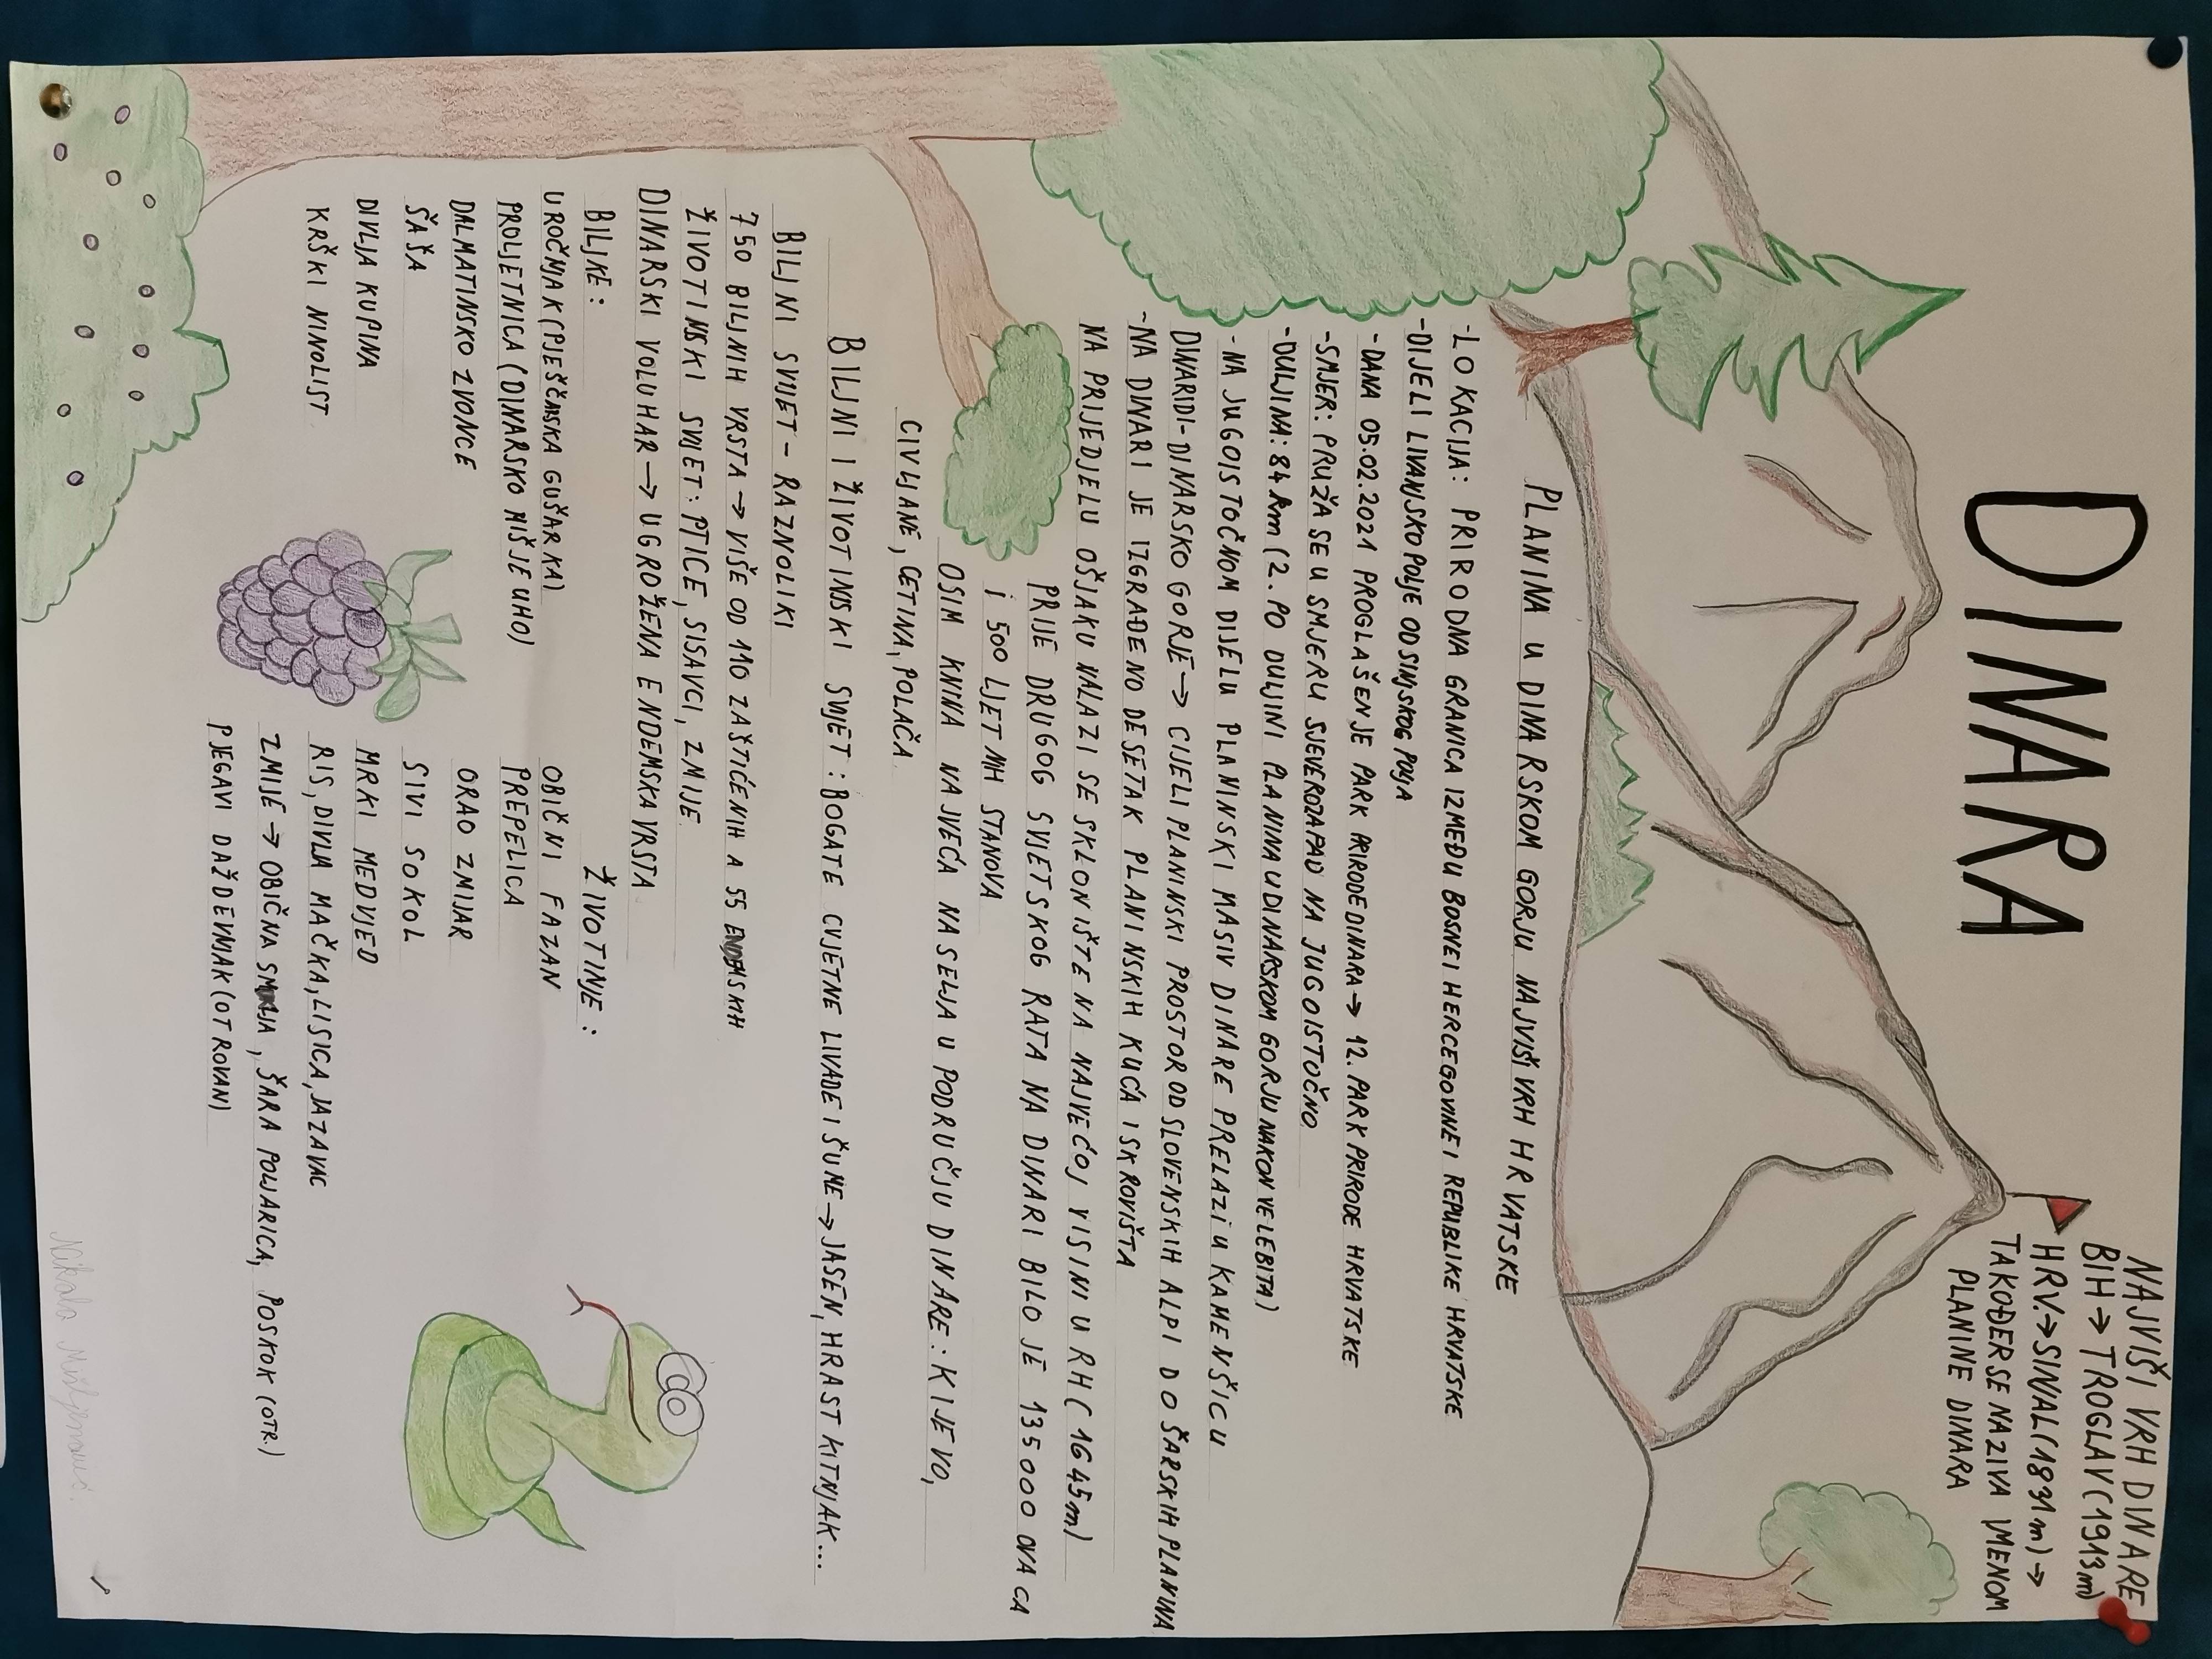 DINARA
NAJVIŠI VRH DINARE
BIH → TROGLAV (1913m)
HRV. → SINJAL (1831m) →
TAKOĐER SE NAZIVA IMENOM
PLANINE DINARA
PLANINA U DINARSKOM GORJU NAJVIŠI VRH HRVATSKE
-LOKACIJA: PRIRODNA GRANICA IZMEĐU BOSNE I HERCEGOVINE I REPUBLIKE HRVATSKE
-DIJELI LIVANJSKO POLJE OD SINJSKOG POLJA
-DANA 05.02.2021 PROGLAŠENJE PARK PRIRODE DINARA → 12. PARK PRIRODE HRVATSKE
-SMJER: PRUŽA SE U SMJERU SJEVEROZAPAD NA JUGOISTOČNO
-DULJINA: 84 km (2. PO DULJINI PLANINA U DINARSKOM GORJU NAKON VELEBITA)
-NA JUGOISTOČNOM DIJELU PLANINSKI MASIV DINARE PRELAZI U KAMENŠICU
DINARIDI-DINARSKO GORJE → CIJELI PLANINSKI PROSTOR OD SLOVENSKIH ALPI DO ŠARSKIH PLANINA
-NA DINARI JE IZGRAĐENO DESETAK PLANINSKIH KUĆA I SKROVIŠTA
NA PRIJEDJELU OŠJAKU NALAZI SE SKLONIŠTE NA NAJVEĆOJ VISINI U RH (1645m)
PRIJE DRUGOG SVJETSKOG RATA NA DINARI BILO JE 135000 OVACA
I 500 LJETNIH STANOVA
OSIM KNINA NAJVEĆA NASELJA U PODRUČJU DINARE: KIJEVO,
CIVLJANE, CETINA, POLAČA
BILJNI I ŽIVOTINSKI SVIJET: BOGATE CVJETNE LIVADE I ŠUME → JASEN, HRAST KITNJAK...
BILJNI SVIJET - RAZNOLIKI
750 BILJNIH VRSTA → VIŠE OD 110 ZAŠTIĆENIH A 55 ENDEMSKIH
ŽIVOTINSKI SVIJET: PTICE, SISAVCI, ZMIJE
DINARSKI VOLUHAR → UGROŽENA ENDEMSKA VRSTA
BILJKE:
UROČNJAK (PJEŠČARSKA GUŠARKA)
PROLJETNICA (DINARSKO MIŠJE UHO)
DALMATINSKO ZVONCE
ŠAŠA
DIVLJA KUPINA
KRŠKI NINOLIST
ŽIVOTINJE:
OBIČNI FAZAN
PREPELICA
ORAO ZMIJAR
SIVI SOKOL
MRKI MEDVJED
RIS, DIVLJA MAČKA, LISICA, JAZAVAC
ZMIJE → OBIČNA SMUKLJA, ŠARA POLJARICA, POSKOK (OTR.)
PJEGAVI DAŽDEVNJAK (OTROVAN)
Nikola